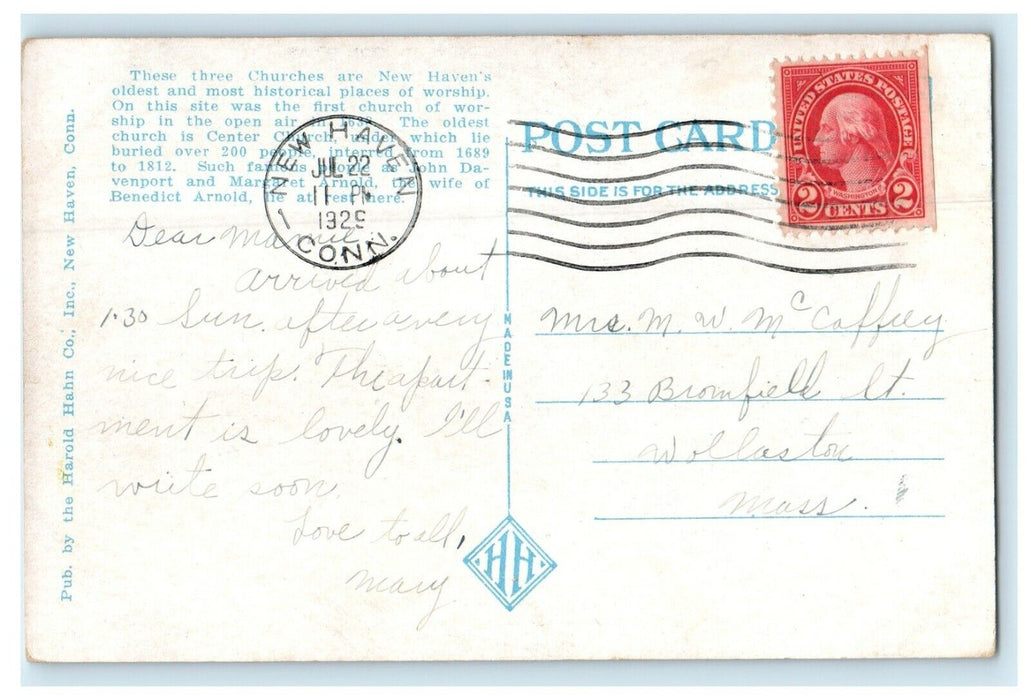 These three Churches are New Haven's
oldest and most historical places of worship.
On this site was the first church of wor-
ship in the open air in 1638. The oldest
church is Center Church, under which lie
buried over 200 people, interred from 1689
to 1812. Such famous as John Da-
venport and Margaret Arnold, the wife of
Benedict Arnold, lie at rest here.
Pub. by the Harold Hahn Co., Inc., New Haven, Conn.
NEW HAVEN
JUL 22
11 PM
1929
1
CONN.
Dear Mamie
arrived about
1.30 Sun. after a very
nice trip. The apart-
ment is lovely. I'll
write soon.
Love to all,
Mary
MADE IN USA
HH
POST CARD
THIS SIDE IS FOR THE ADDRESS
UNITED STATES POSTAGE
WASHINGTON
2 CENTS 2
Mrs. M. W. McCaffrey
133 Bromfield St.
Wollaston
Mass.